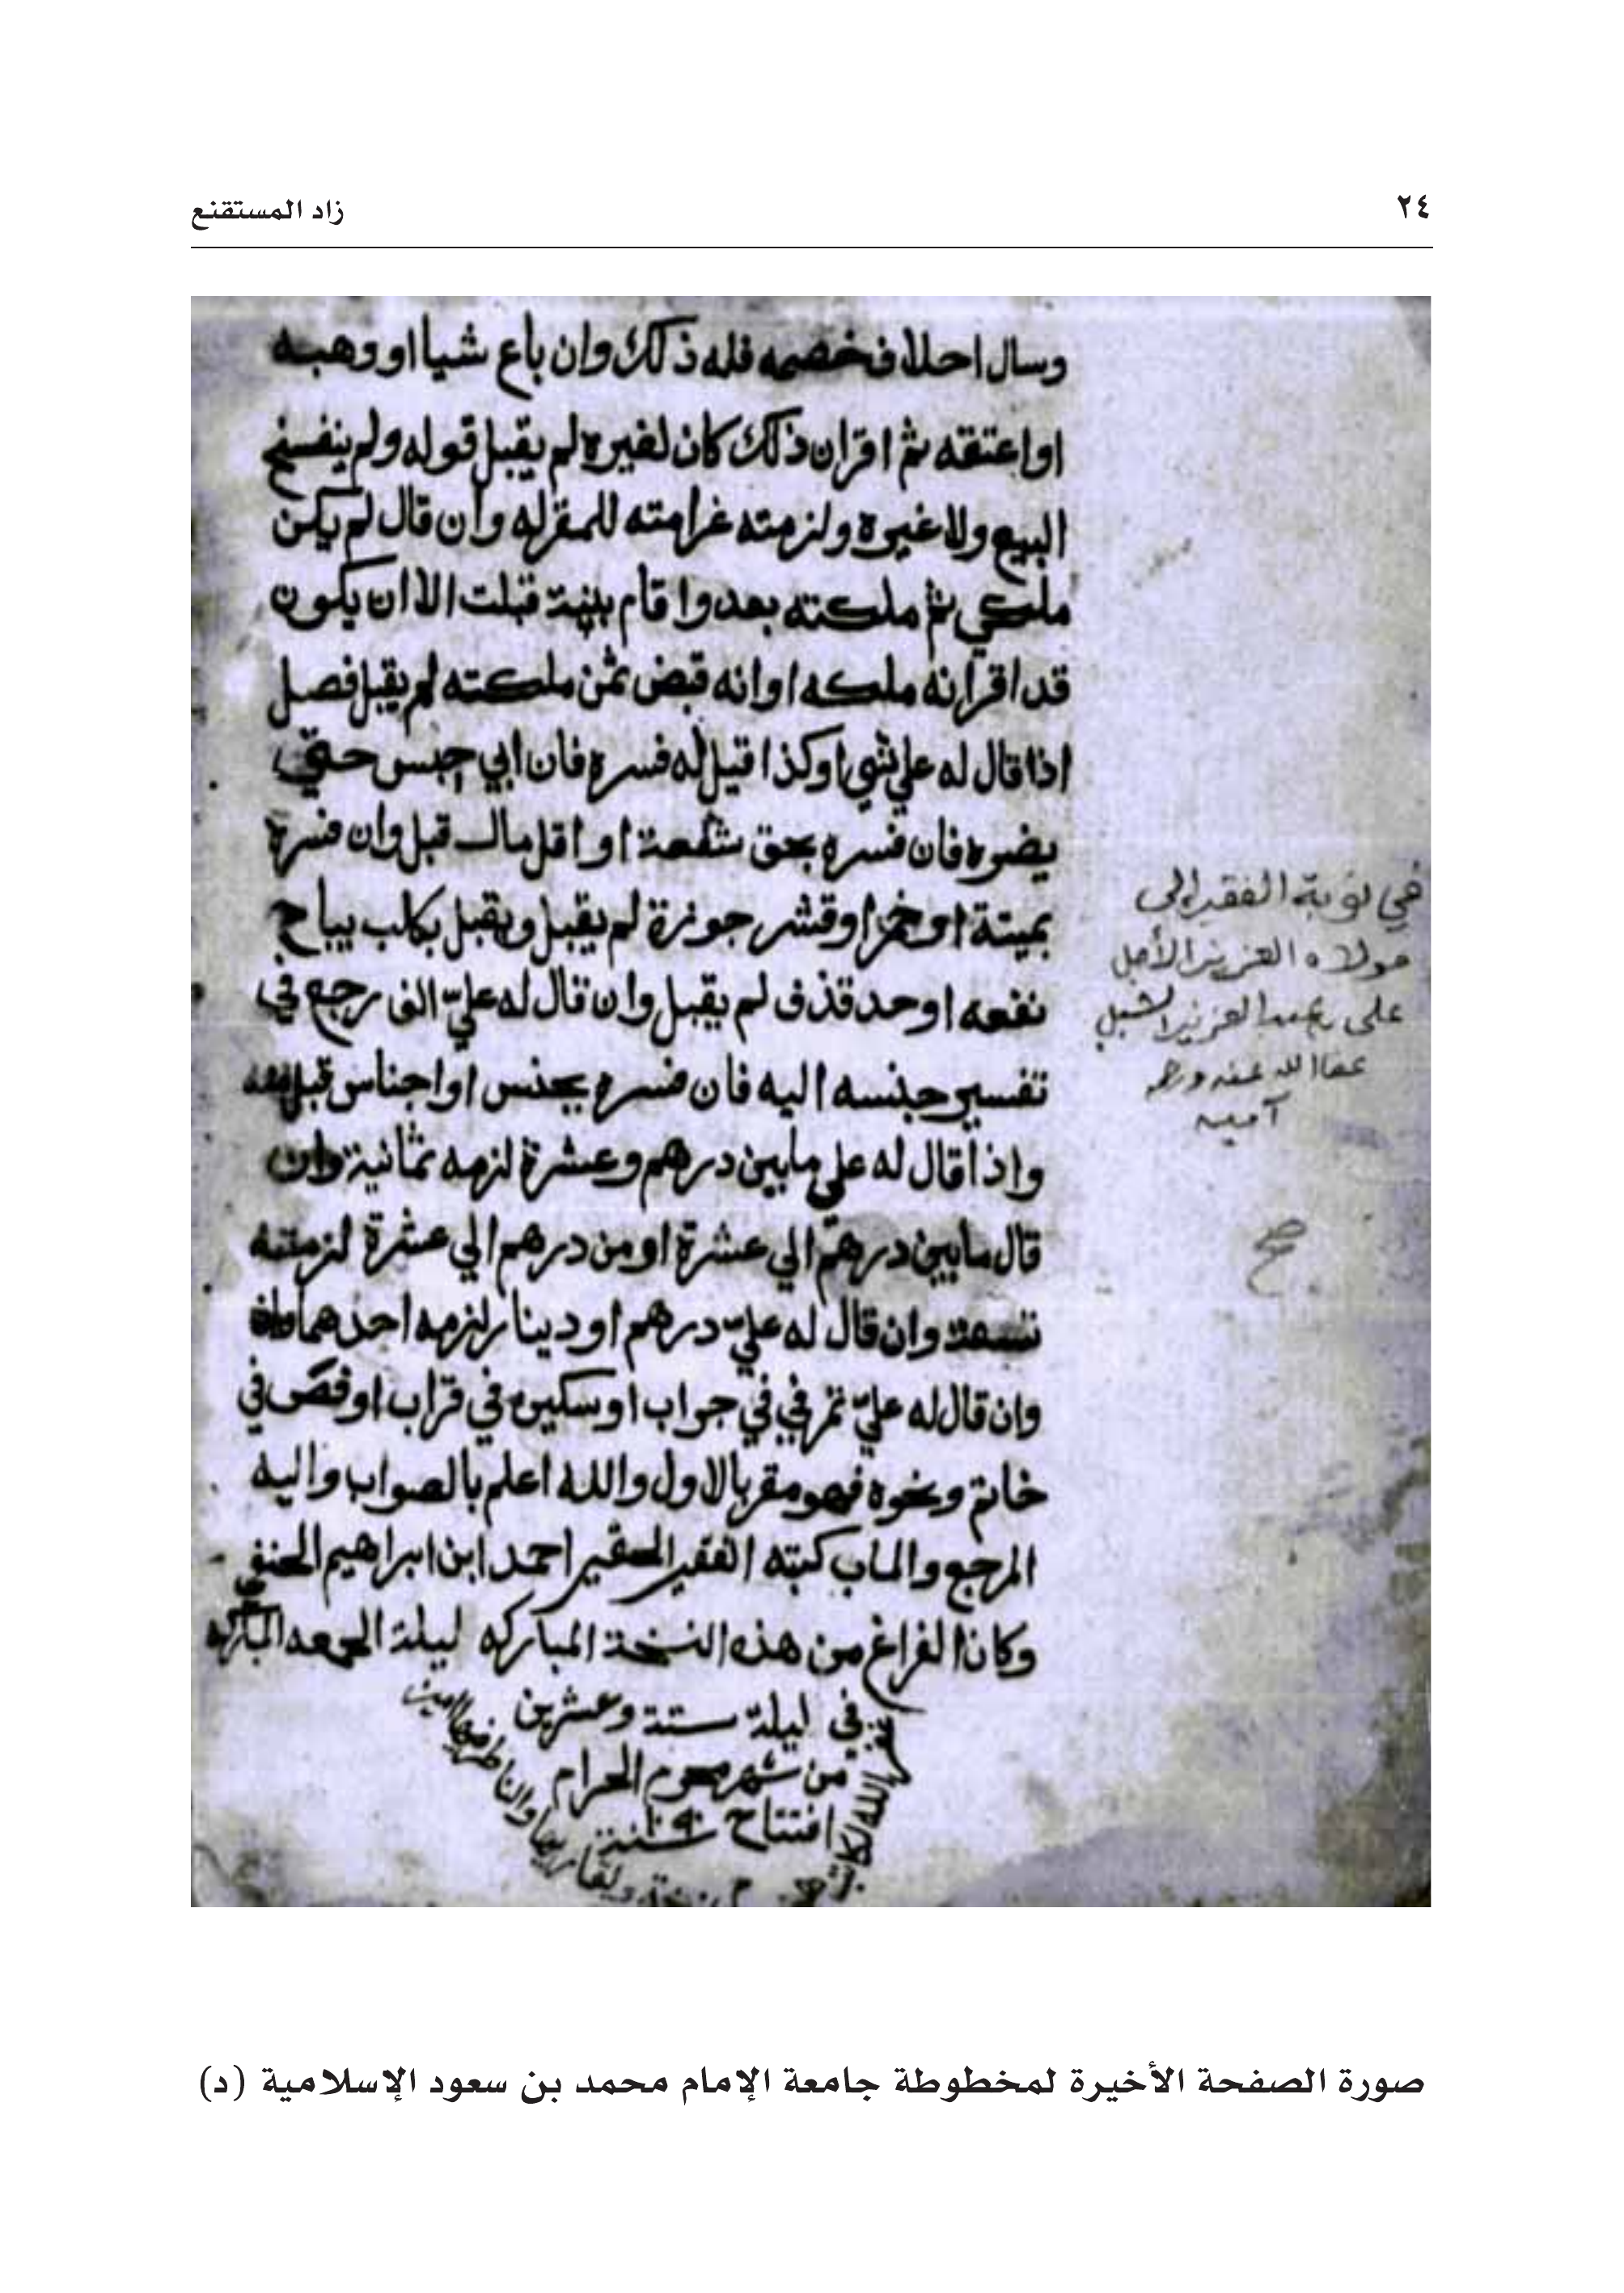 ٢٤
زاد المستقنع
وسال احلاف خصمه فله ذلك وان باع شيا او وهبه
او اعتقه ثم اقر ان ذلك كان لغيره لم يقبل قوله ولم ينفسخ
البيع ولا غيره ولزمته غرامته للمقر له وان قال لم يكن
ملكي ثم ملكته بعد واقام بينة قبلت الا ان يكون
قد اقر انه ملكه او انه قبض ثمن ملكته لم يقبل فصل
اذا قال له علي شي او كذا قيل له فسره فان ابي حبس حتي
يفسره فان فسره بحق شفعة او اقل مال قبل وان فسره
بميتة او خمر او قشر جوزة لم يقبل ويقبل بكلب يباح
نفعه او حد قذف لم يقبل وان قال له عليّ الف رجع في
تفسير جنسه اليه فان فسره بجنس او اجناس قبل منه
واذا قال له علي ما بين درهم وعشرة لزمه ثمانية وان
قال ما بين درهم الي عشرة او من درهم الي عشرة لزمته
تسعة وان قال له عليّ درهم او دينار لزمه احدهما
وان قال له عليّ تمر في في جراب او سكين في قراب او فص في
خاتم ونحوه فهو مقر بالاول والله اعلم بالصواب واليه
المرجع والماب كتبه الفقير الحقير احمد ابن ابراهيم الحنفي
وكان الفراغ من هذه النسخة المباركه ليلة الجمعه المباركه
في ليلة ستة وعشرين
من شهر محرم الحرام
افتتاح سنة ١٠٩٠
غفر الله لكاتبه
في نوبة الفقير الى
مولاه العزيز الأجل
على بعبد العزيز الشبل
عفا الله عنه ورحمه
آمين
صح
صورة الصفحة الأخيرة لمخطوطة جامعة الإمام محمد بن سعود الإسلامية (د)